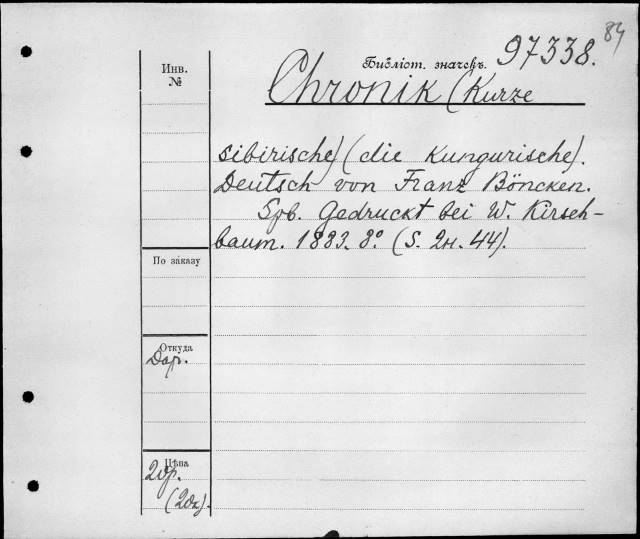 84
Инв.
№
Библіот. значекъ. 97338.
Chronik (Kurze
sibirische) (die Kungurische).
Deutsch von Franz Böncken.
Spb. Gedruckt bei W. Kirsch-
baum. 1883. 8° (S. 2н. 44).
По заказу
Откуда
Дар.
Цѣна
20р.
(2эк).